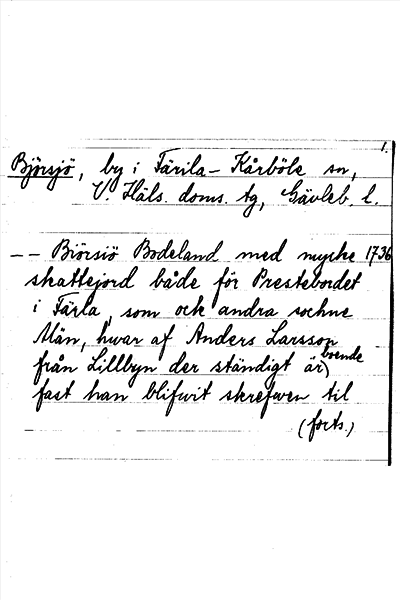 1.
Björsjö, by i Färila - Kårböle sn,
V. Häls. doms. tg, Gävleb. l.
-- Biörsiö Bodeland med mycke 1736
skattejord både för Prestebordet
i Färla, som och andra sochne
Män, hwar af Anders Larsson
från Lillbyn der ständigt är boende
fast han blifwit skrefwen til
(forts.)